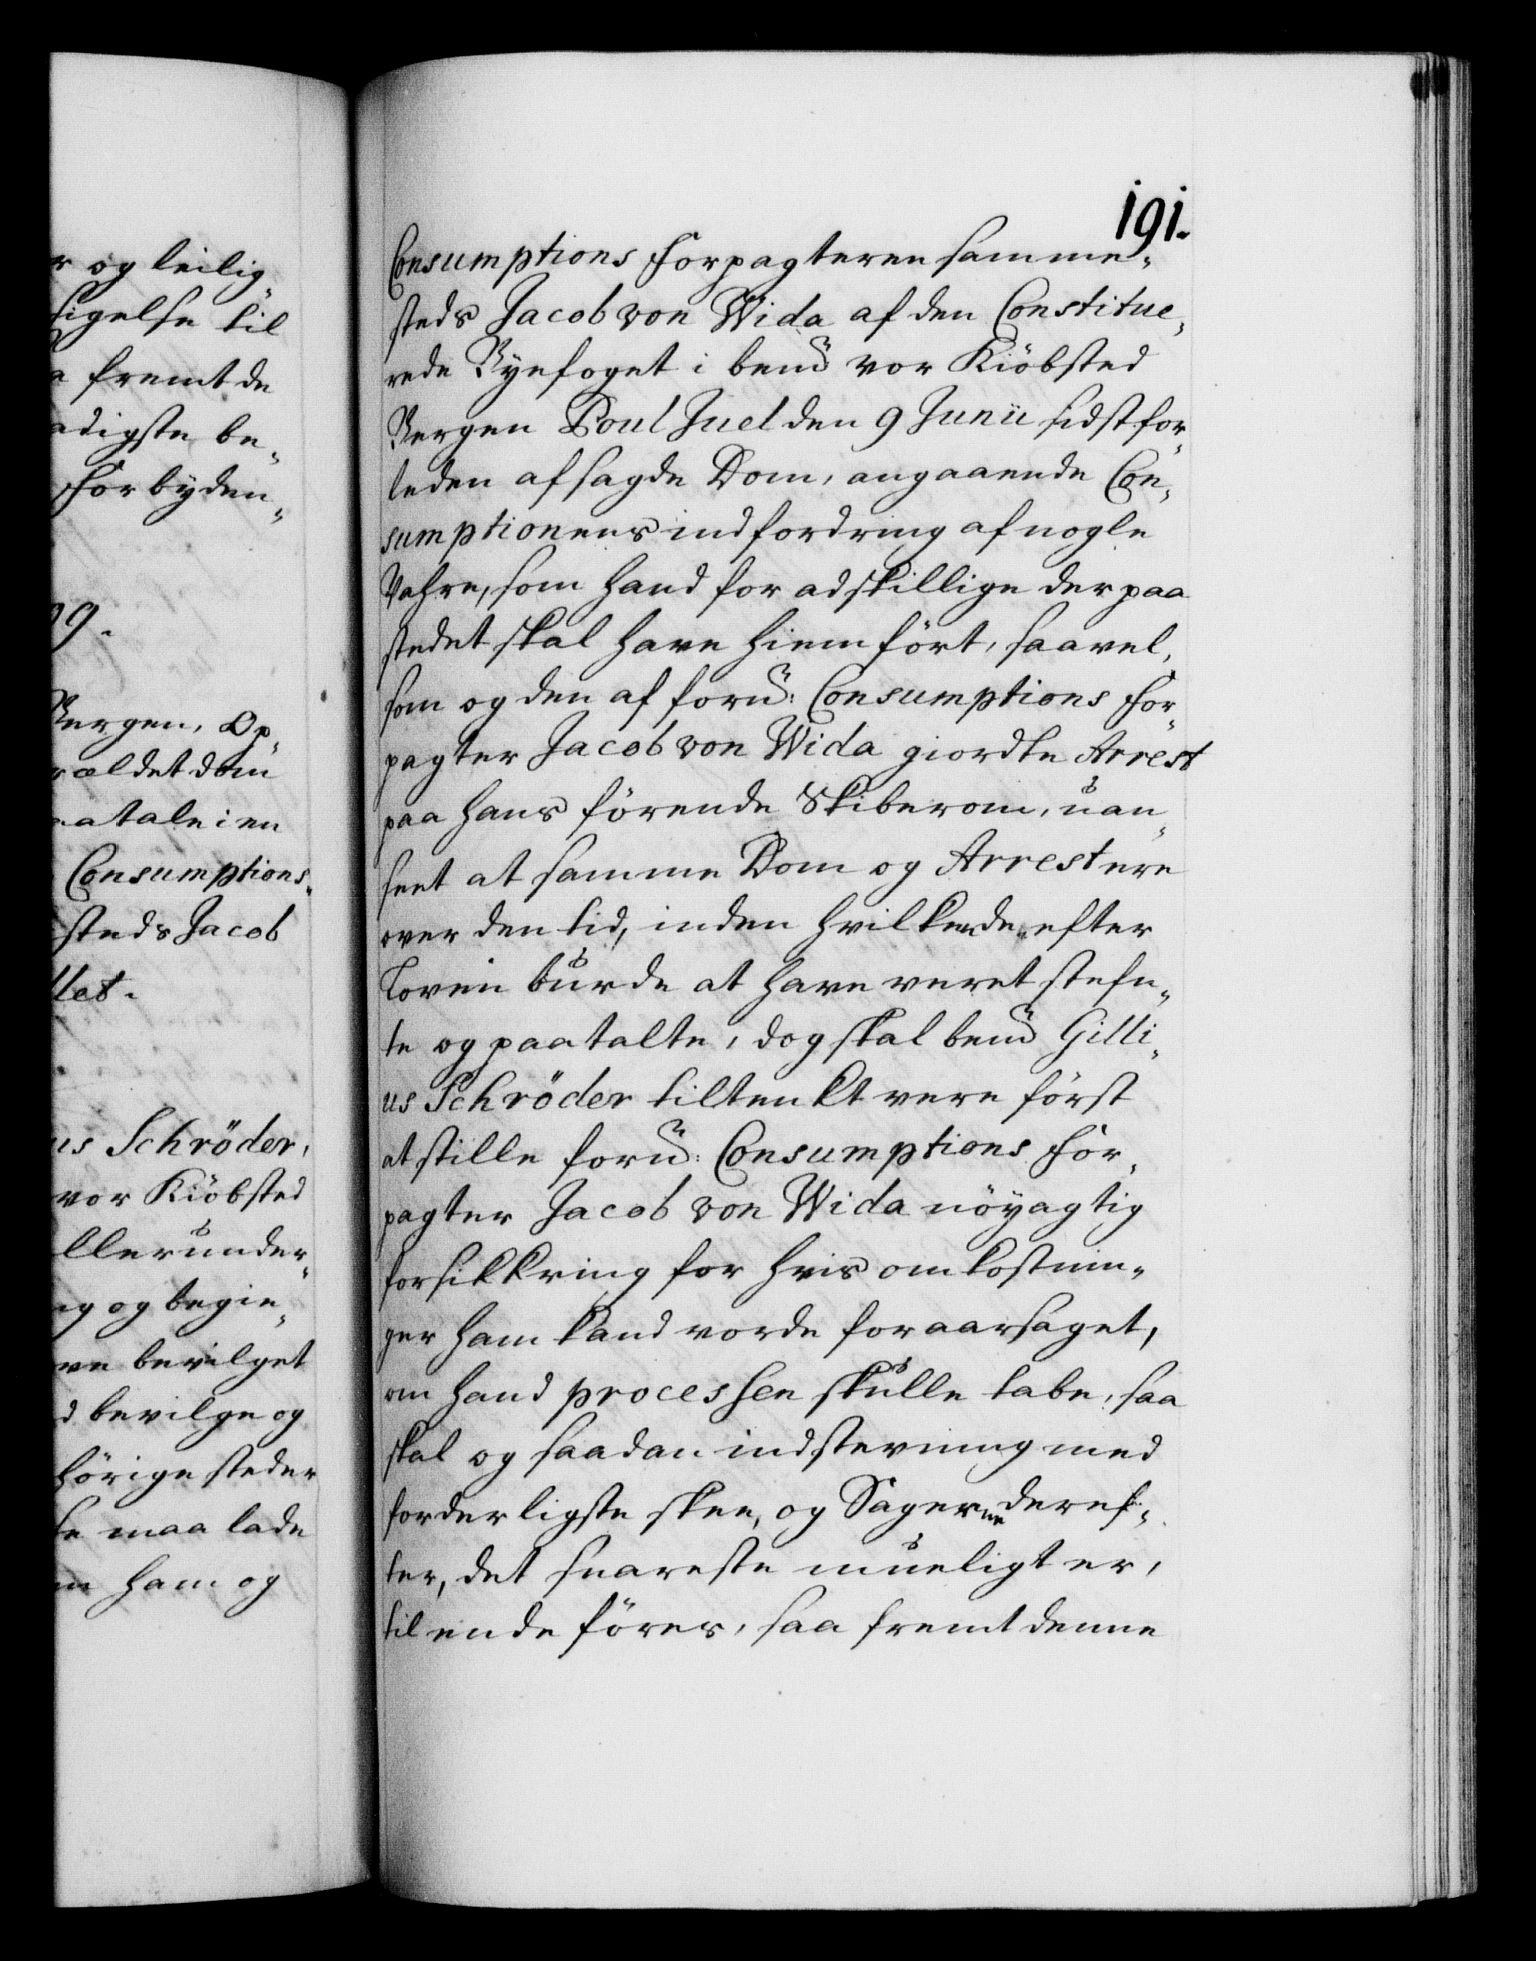 r og leilig„
sigelse til
a fremt de
adigste be„
Forbyden„
99.
Bergen, Op„
ældet dom
aatale i en
Consumptions„
steds Jacob
llet.
us Schröder,
vor Kiöbsted
ller under„
og begie„
ve bevilget
d bevilge og
hörige steder
se maa lade
ham og
191.
Consumptions Forpagteren samme„
steds Jacob von Wida af den Constitue„
rede Byefoget i bemd vor Kiöbsted
Bergen Poul Juel den 9 Junii sidst for„
leden afsagde Dom, angaaende Con„
sumptionens indfordring af nogle
Vahre, som hand for adskillige der paa
stedet skal have hiemfört, saavel„
som og den af forn: Consumptions For„
pagter Jacob von Wida giordte Arrest
paa hans förende Skiberom, uan„
seet at samme Dom og Arrest ere
over den tid, inden hvilken de efter
Loven burde at have veret stefn„
te og paatalte, dog skal bemd Gilli„
us Schröder tiltenkt vere först
at stille forn: Consumptions For„
pagter Jacob von Wida nöyagtig
forsikkring for hvis omkostnin„
ger ham kand vorde foraarsaget,
om hand processen skulle tabe, saa
skal og saadan indstevning med
forderligste skee, og Sagerne deref„
ter, det snareste mueligt er,
til ende föres, saa fremt denne